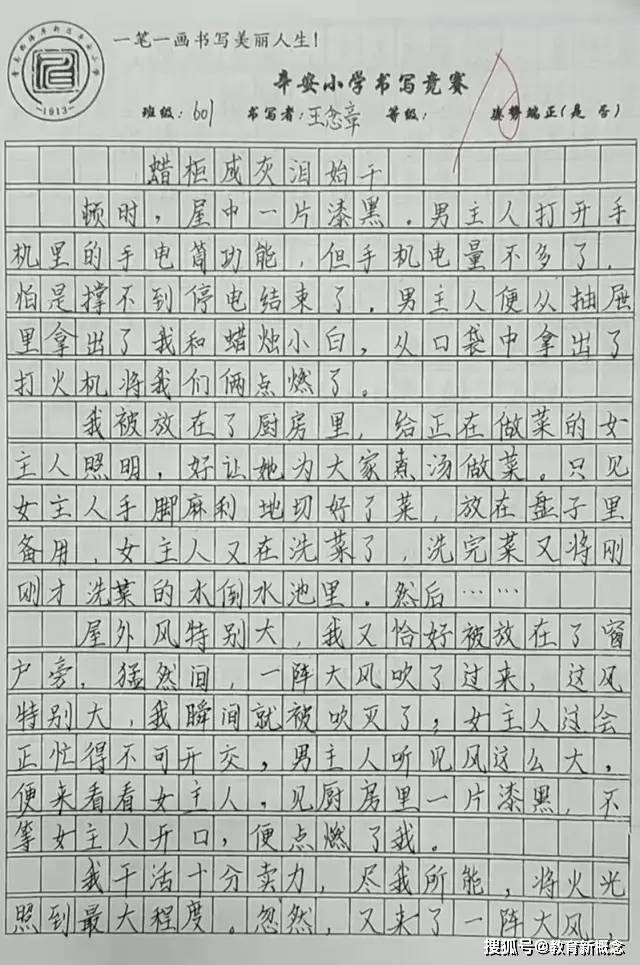 一笔一画书写美丽人生！
辛安小学书写竞赛
班级：601 书写者：王念章 等级： 姿势端正（是 否）
1913
蜡柜成灰泪始干
顿时，屋中一片漆黑。男主人打开手
机里的手电筒功能，但手机电量不多了，
怕是撑不到停电结束了。男主人便从抽屉
里拿出了我和蜡烛小白，从口袋中拿出了
打火机将我们俩点燃了。
我被放在了厨房里，给正在做菜的女
主人照明，好让她为大家煮汤做菜。只见
女主人手脚麻利地切好了菜，放在盘子里
备用，女主人又在洗菜了，洗完菜又将刚
刚才洗菜的水倒水池里。然后……
屋外风特别大，我又恰好被放在了窗
户旁，猛然间，一阵大风吹了过来，这风
特别大，我瞬间就被吹灭了，女主人这会
正忙得不可开交，男主人听见风这么大，
便来看看女主人，见厨房里一片漆黑，不
等女主人开口，便点燃了我。
我干活十分卖力，尽我所能，将火光
照到最大程度。忽然，又来了一阵大风，
搜狐号@教育新概念